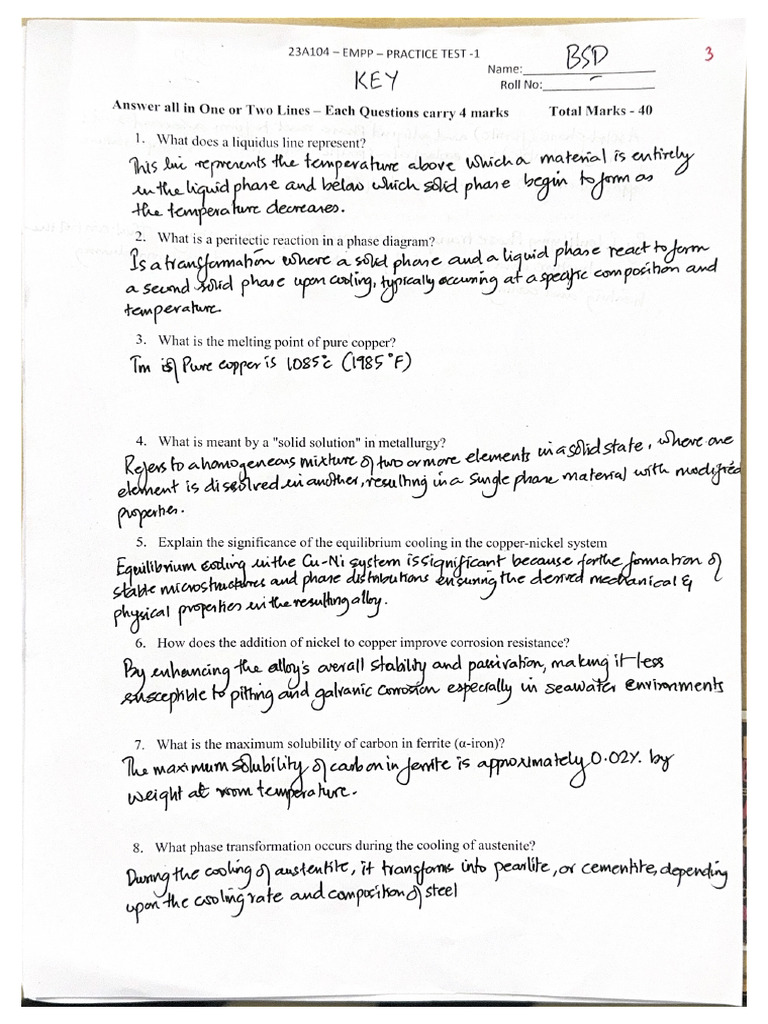 23A104 – EMPP – PRACTICE TEST -1
3
KEY
Name: BSD
Roll No: –
Answer all in One or Two Lines – Each Questions carry 4 marks Total Marks - 40
1. What does a liquidus line represent?
This line represents the temperature above which a material is entirely
in the liquid phase and below which solid phase begin to form as
the temperature decreases.
2. What is a peritectic reaction in a phase diagram?
Is a transformation where a solid phase and a liquid phase react to form
a second solid phase upon cooling, typically occuring at a specific composition and
temperature.
3. What is the melting point of pure copper?
Tm of Pure copper is 1085°c (1985°F)
4. What is meant by a "solid solution" in metallurgy?
Refers to a homogeneous mixture of two or more elements in a solid state, where one
element is dissolved in another, resulting in a single phase material with modified
properties.
5. Explain the significance of the equilibrium cooling in the copper-nickel system
Equilibrium cooling in the Cu-Ni system is significant because for the formation of
stable microstructures and phase distributions ensuring the desired mechanical &
physical properties in the resulting alloy.
6. How does the addition of nickel to copper improve corrosion resistance?
By enhancing the alloy's overall stability and passivation, making it less
susceptible to pitting and galvanic corrosion especially in seawater environments
7. What is the maximum solubility of carbon in ferrite (α-iron)?
The maximum solubility of carbon in ferrite is approximately 0.02%. by
weight at room temperature.
8. What phase transformation occurs during the cooling of austenite?
During the cooling of austentite, it transforms into pearlite, or cementite, depending
upon the cooling rate and composition of steel